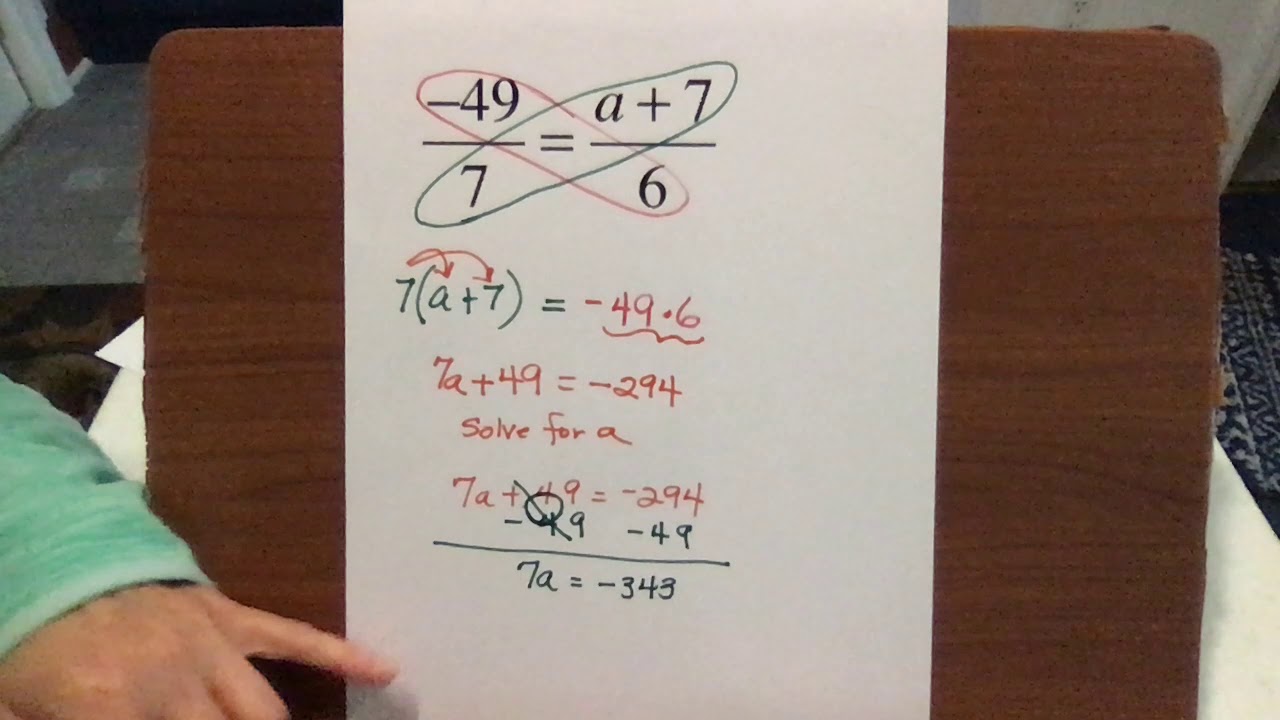 –49 = a + 7
7 6
7(a+7) = -49·6
7a+49 = -294
Solve for a
7a+49 = -294
-49 -49
7a = -343